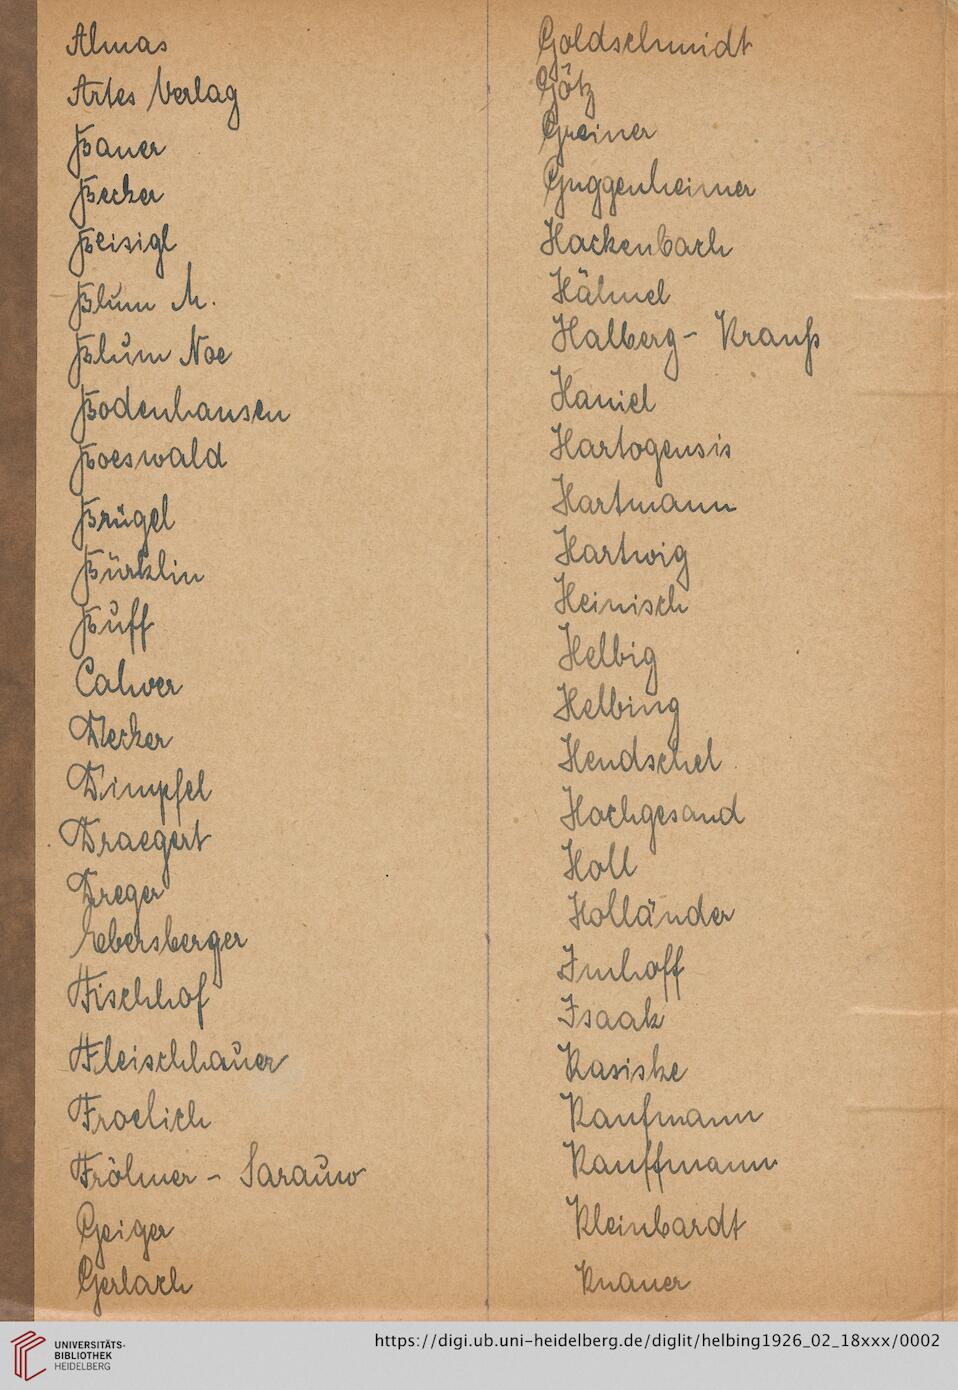 Almas
Artes Verlag
Bauer
Becker
Beisigl
Blum M.
Blum Noe
Bodenhausen
Boeswald
Brügel
Bürklin
Buff
Calwer
Decker
Dimpfel
Draegert
Dreger
Ebersberger
Fischhof
Fleischhauer
Froelich
Fröhner - Sarauw
Geiger
Gerlach
Goldschmidt
Götz
Greiner
Guggenheimer
Hackenbach
Hähnel
Halberg - Krauß
Haniel
Hartogensis
Hartmann
Hartwig
Heinisch
Helbig
Helbing
Hendschel
Hochgesand
Holl
Holländer
Imhoff
Isaak
Kasiske
Kaufmann
Kauffmann
Kleinhardt
Knauer
UNIVERSITÄTS-
BIBLIOTHEK
HEIDELBERG
https://digi.ub.uni-heidelberg.de/diglit/helbing1926_02_18xxx/0002